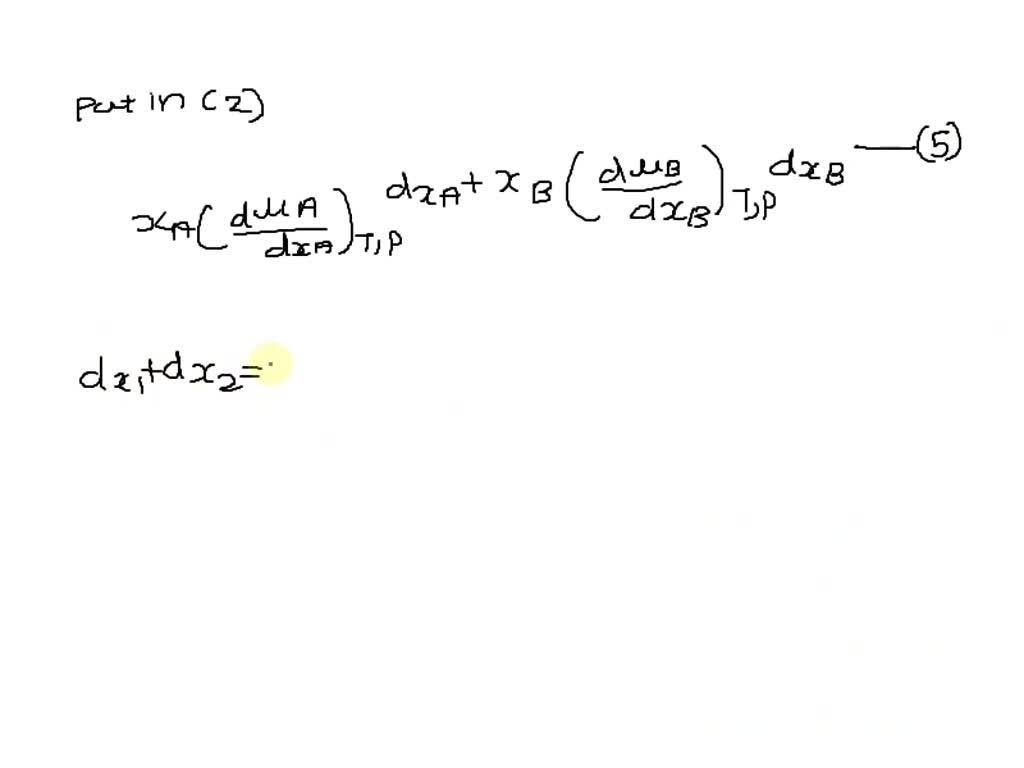 Put in (2)
xA(dμA/dxA)T,P dxA + xB(dμB/dxB)T,P dxB —(5)
dx1+dx2=